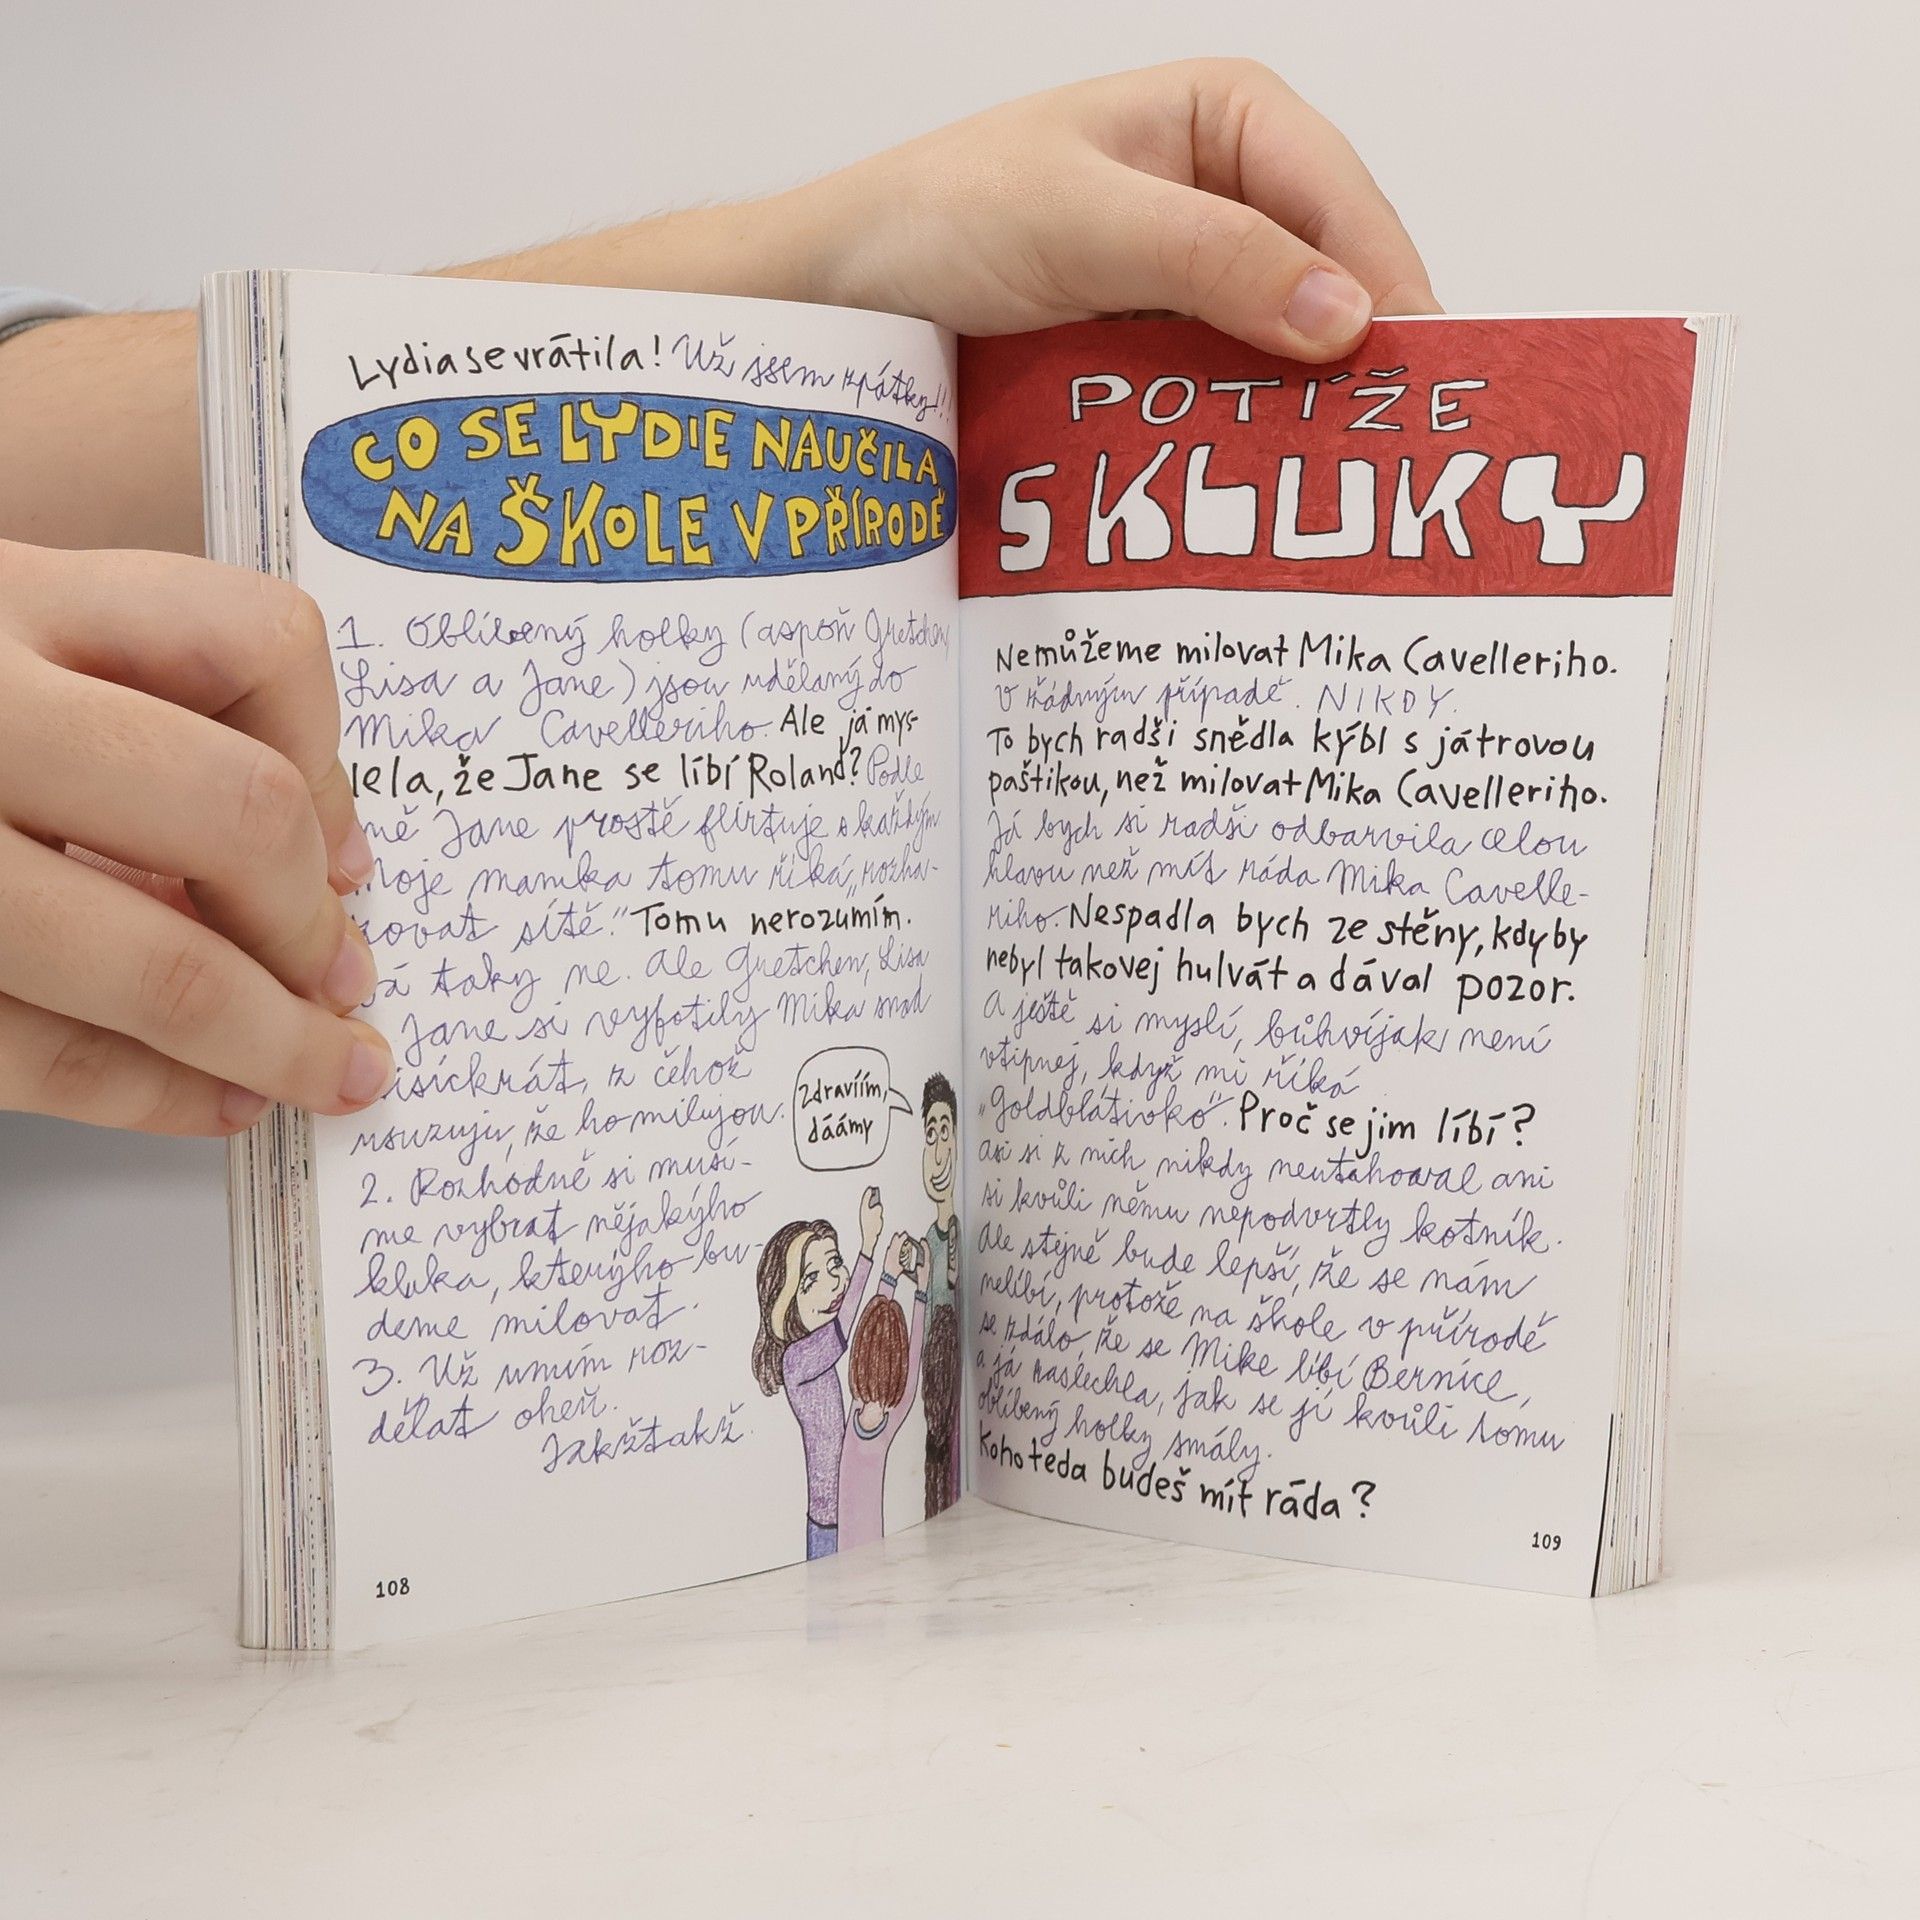 Lydia se vrátila! Už jsem zpátky!!!
CO SE LYDIE NAUČILA
NA ŠKOLE V PŘÍRODĚ
1. Oblíbený holky (aspoň Gretchen,
Lisa a Jane) jsou udělaný do
Mika Cavelleriho. Ale já mys-
lela, že Jane se líbí Roland? Podle
mě Jane prostě flirtuje s každým.
Moje mamka tomu říká „rozha-
zovat sítě." Tomu nerozumím.
Já taky ne. Ale Gretchen, Lisa
Jane si vyfotily Mika snad
tisíckrát, z čehož
usuzuju, že ho milujou.
2. Rozhodně si musí-
me vybrat nějakýho
kluka, kterýho bu-
deme milovat.
3. Už umím roz-
dělat oheň.
Jakžtakž.
Zdravíím,
dáámy
108
POTÍŽE
S KLUKY
Nemůžeme milovat Mika Cavelleriho.
V žádným případě. NIKDY.
To bych radši snědla kýbl s játrovou
paštikou, než milovat Mika Cavelleriho.
Já bych si radši odbarvila celou
hlavu než mít ráda Mika Cavelle-
riho. Nespadla bych ze stěny, kdyby
nebyl takovej hulvát a dával pozor.
A ještě si myslí, bůhvíjak není
vtipnej, když mi říká
„Goldblátivko". Proč se jim líbí?
Asi si z nich nikdy neutahoval ani
si kvůli němu nepodvrtly kotník.
Ale stejně bude lepší, že se nám
nelíbí, protože na škole v přírodě
se zdálo, že se Mike líbí Bernice,
a já zaslechla, jak se jí kvůli tomu
oblíbený holky smály.
Koho teda budeš mít ráda?
109